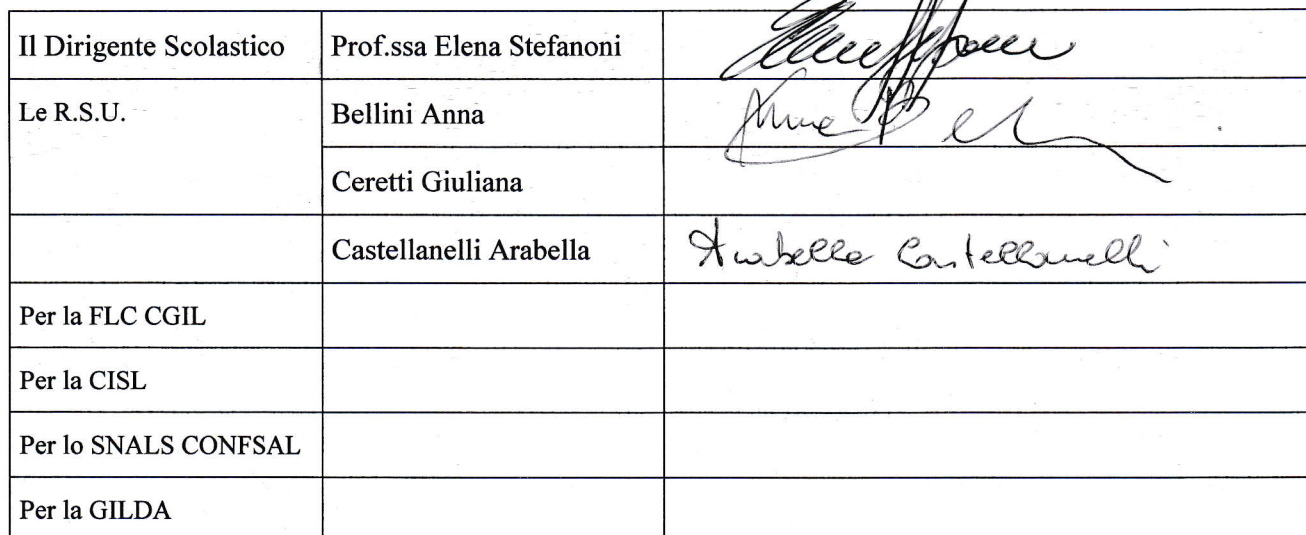 Il Dirigente Scolastico Prof.ssa Elena Stefanoni
Le R.S.U. Bellini Anna
Ceretti Giuliana
Castellanelli Arabella Arabella Castellanelli
Per la FLC CGIL
Per la CISL
Per lo SNALS CONFSAL
Per la GILDA